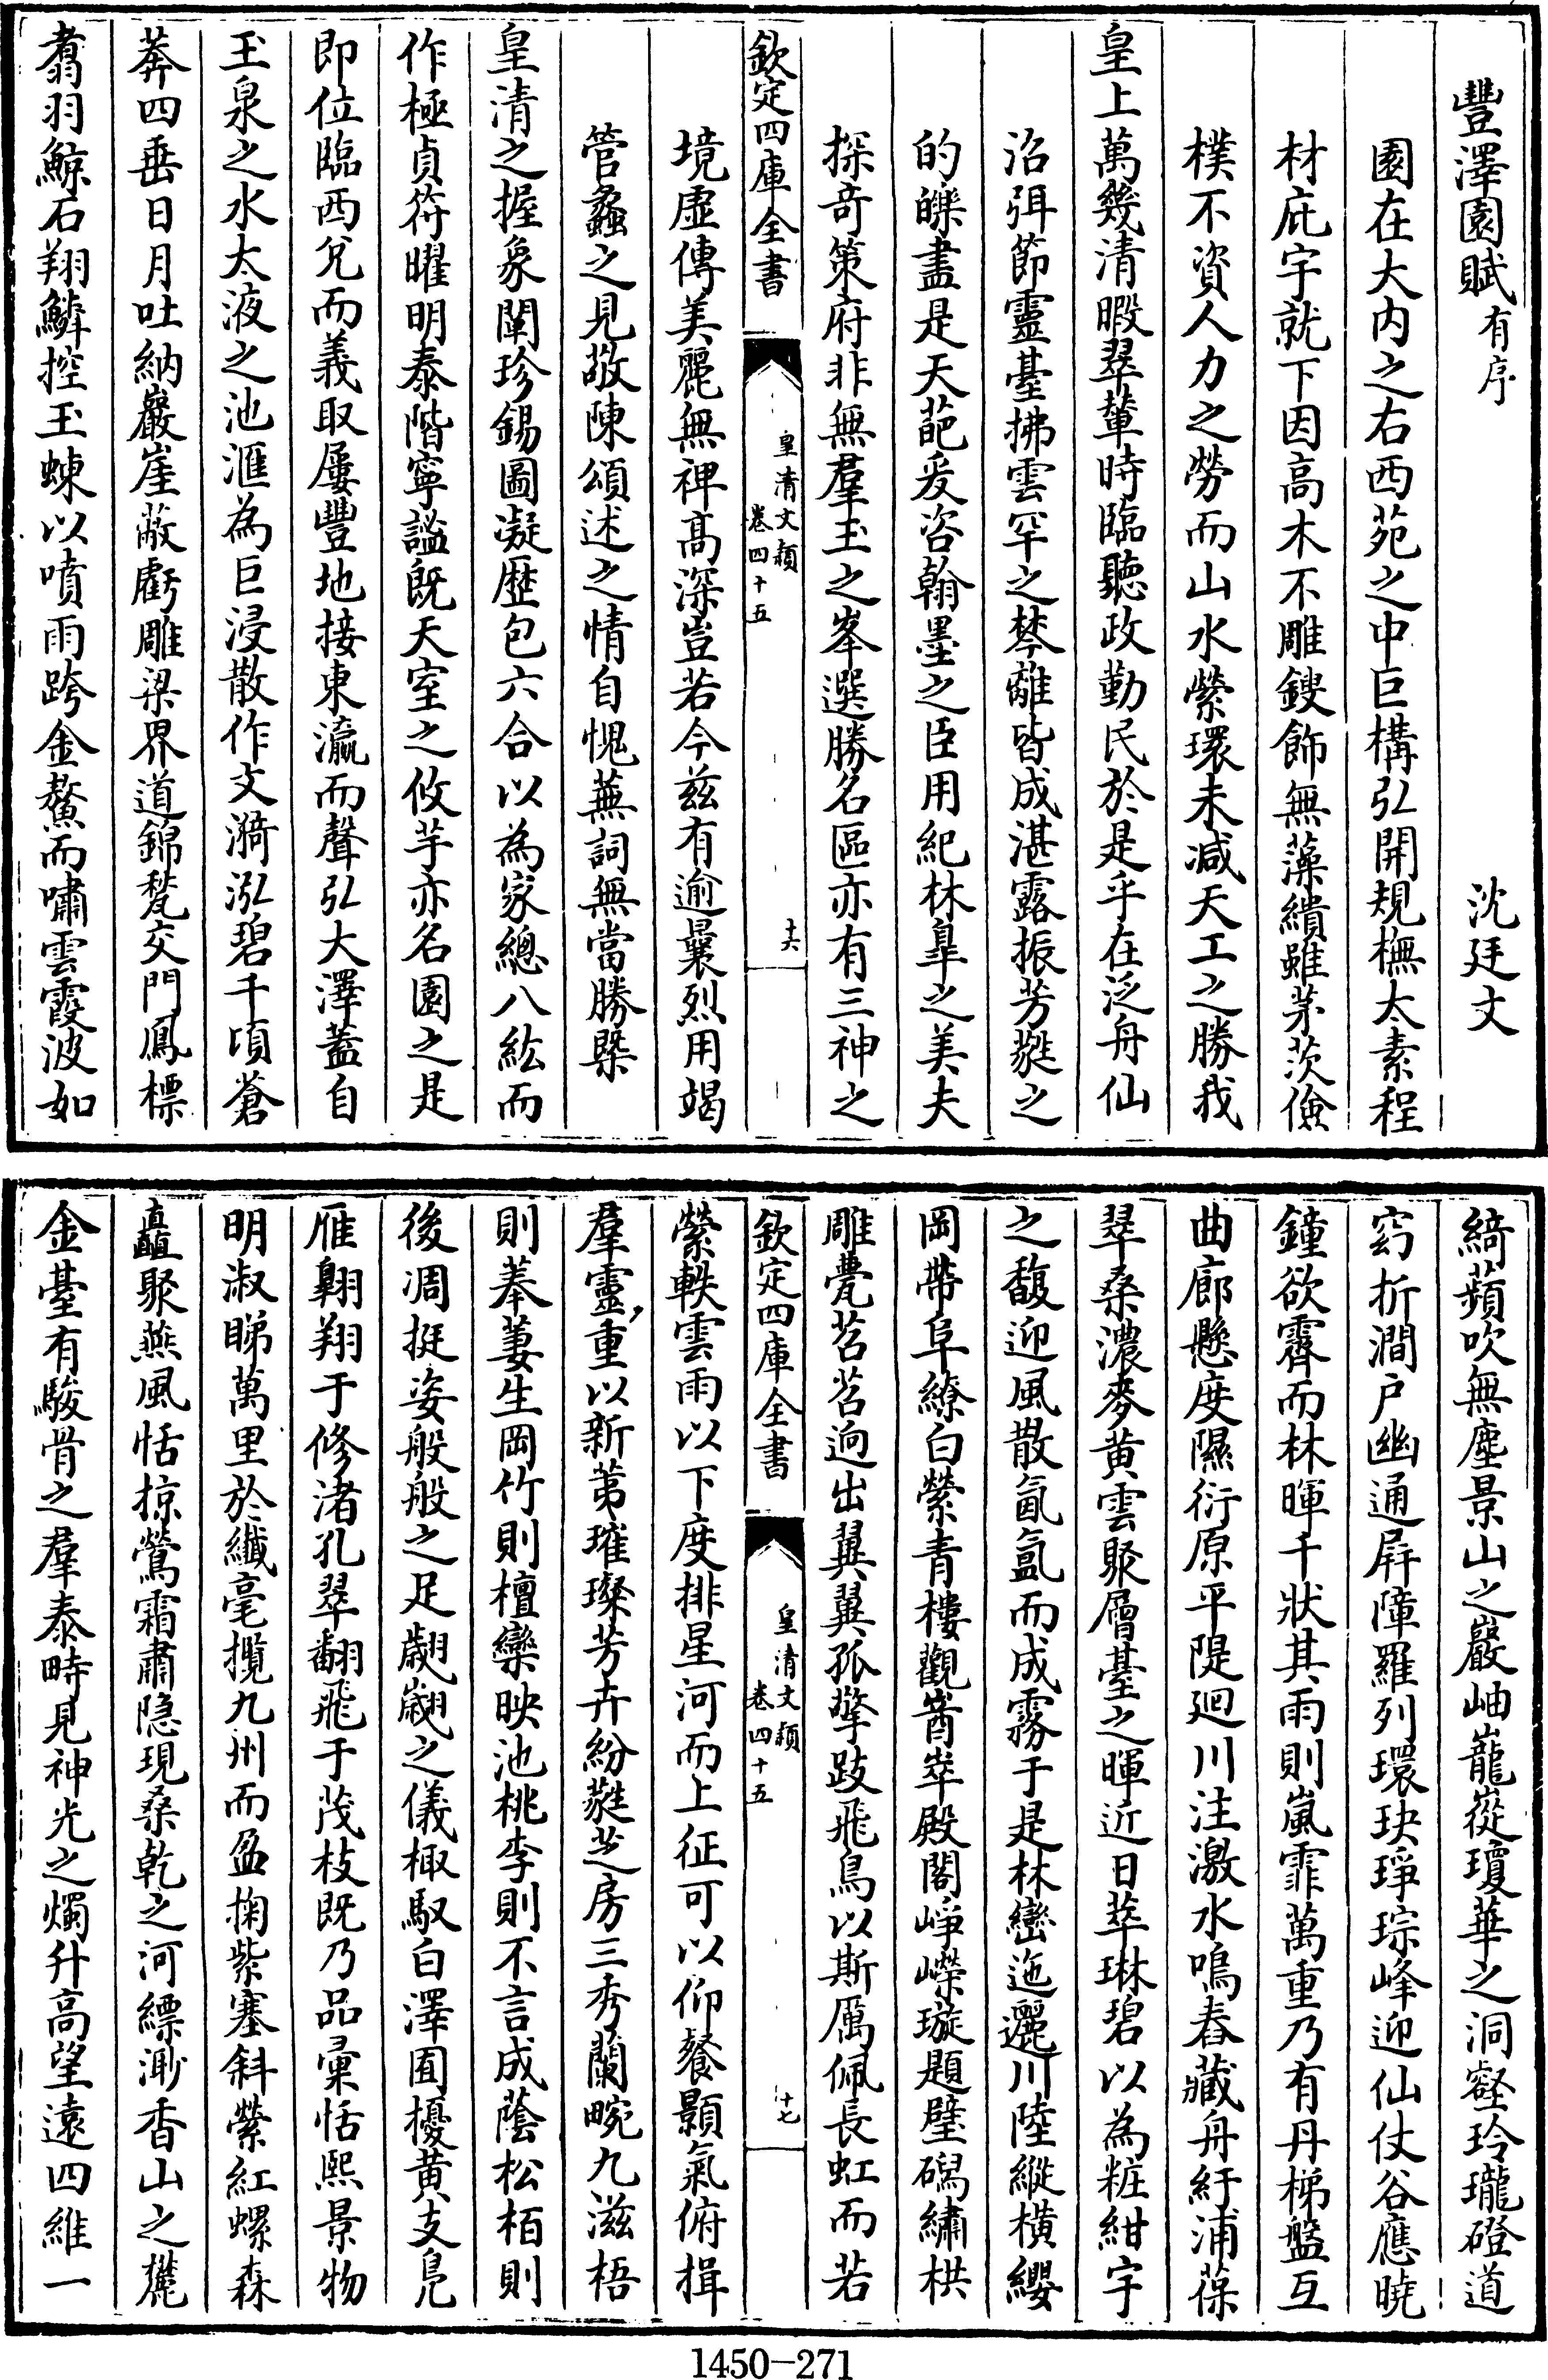 豐澤園賦有序　沈廷文
園在大内之右西苑之中巨構弘開規橅太素程
材庇宇就下因高木不雕鎪飾無藻繢雖茅茨儉
樸不資人力之勞而山水縈環未減天工之勝我
皇上萬幾清暇翠輦時臨聽政勤民於是乎在泛舟仙
沼弭節靈臺拂雲罕之棽離皆成湛露振芳蕤之
的皪盡是天葩爰咨翰墨之臣用紀林臯之美夫
探奇策府非無羣玉之峯選勝名區亦有三神之
欽定四庫全書　皇清文穎　卷四十五　十六
境虛傳美麗無裨高深豈若今兹有逾曩烈用竭
管蠡之見敬陳頌述之情自愧蕪詞無當勝槩
皇清之握象闡珍錫圖凝歷包六合以為家總八紘而
作極貞符曜明泰階寧謐既天室之攸芋亦名園之是
即位臨西兊而義取屢豐地接東瀛而聲弘大澤蓋自
玉泉之水太液之池滙為巨浸散作文漪泓碧千頃蒼
莽四垂日月吐納巖崖蔽虧雕梁界道錦甃交門鳳標
翥羽鯨石翔鱗控玉蝀以噴雨跨金鰲而嘯雲霞波如
綺蘋吹無塵景山之巖岫巃嵸瓊華之洞壑玲瓏磴道
窈折澗户幽通屏障羅列環玦琤琮峰迎仙仗谷應曉
鐘欲霽而林暉千狀其雨則嵐霏萬重乃有丹梯盤互
曲廊懸度隰衍原平隄廻川注激水鳴舂藏舟紆浦葆
翠桑濃麥黄雲聚層臺之暉近日萃琳碧以為粧紺宇
之馥迎風散氤氲而成霧于是林巒迤邐川陸縱横纓
岡帶阜繚白縈青樓觀崷崪殿閣崢嶸璇題璧磶繡栱
雕甍苕苕逈出翼翼孤擎跂飛鳥以斯厲佩長虹而若
欽定四庫全書　皇清文穎　卷四十五　十七
縈軼雲雨以下度排星河而上征可以仰餐顥氣俯揖
羣靈重以新荑璀璨芳卉紛蕤芝房三秀蘭畹九滋梧
則菶萋生岡竹則檀欒映池桃李則不言成蔭松栢則
後凋挺姿般般之足翽翽之儀棷馭白澤囿擾黄支鳬
雁翺翔于修渚孔翠翻飛于茂枝既乃品彚恬熙景物
明淑睇萬里於纖毫攬九州而盈掬紫塞斜縈紅螺森
矗聚燕風恬掠鶯霜肅隐現桑乾之河縹渺香山之麓
金臺有駿骨之羣泰畤見神光之燭升高望遠四維一
1450-271